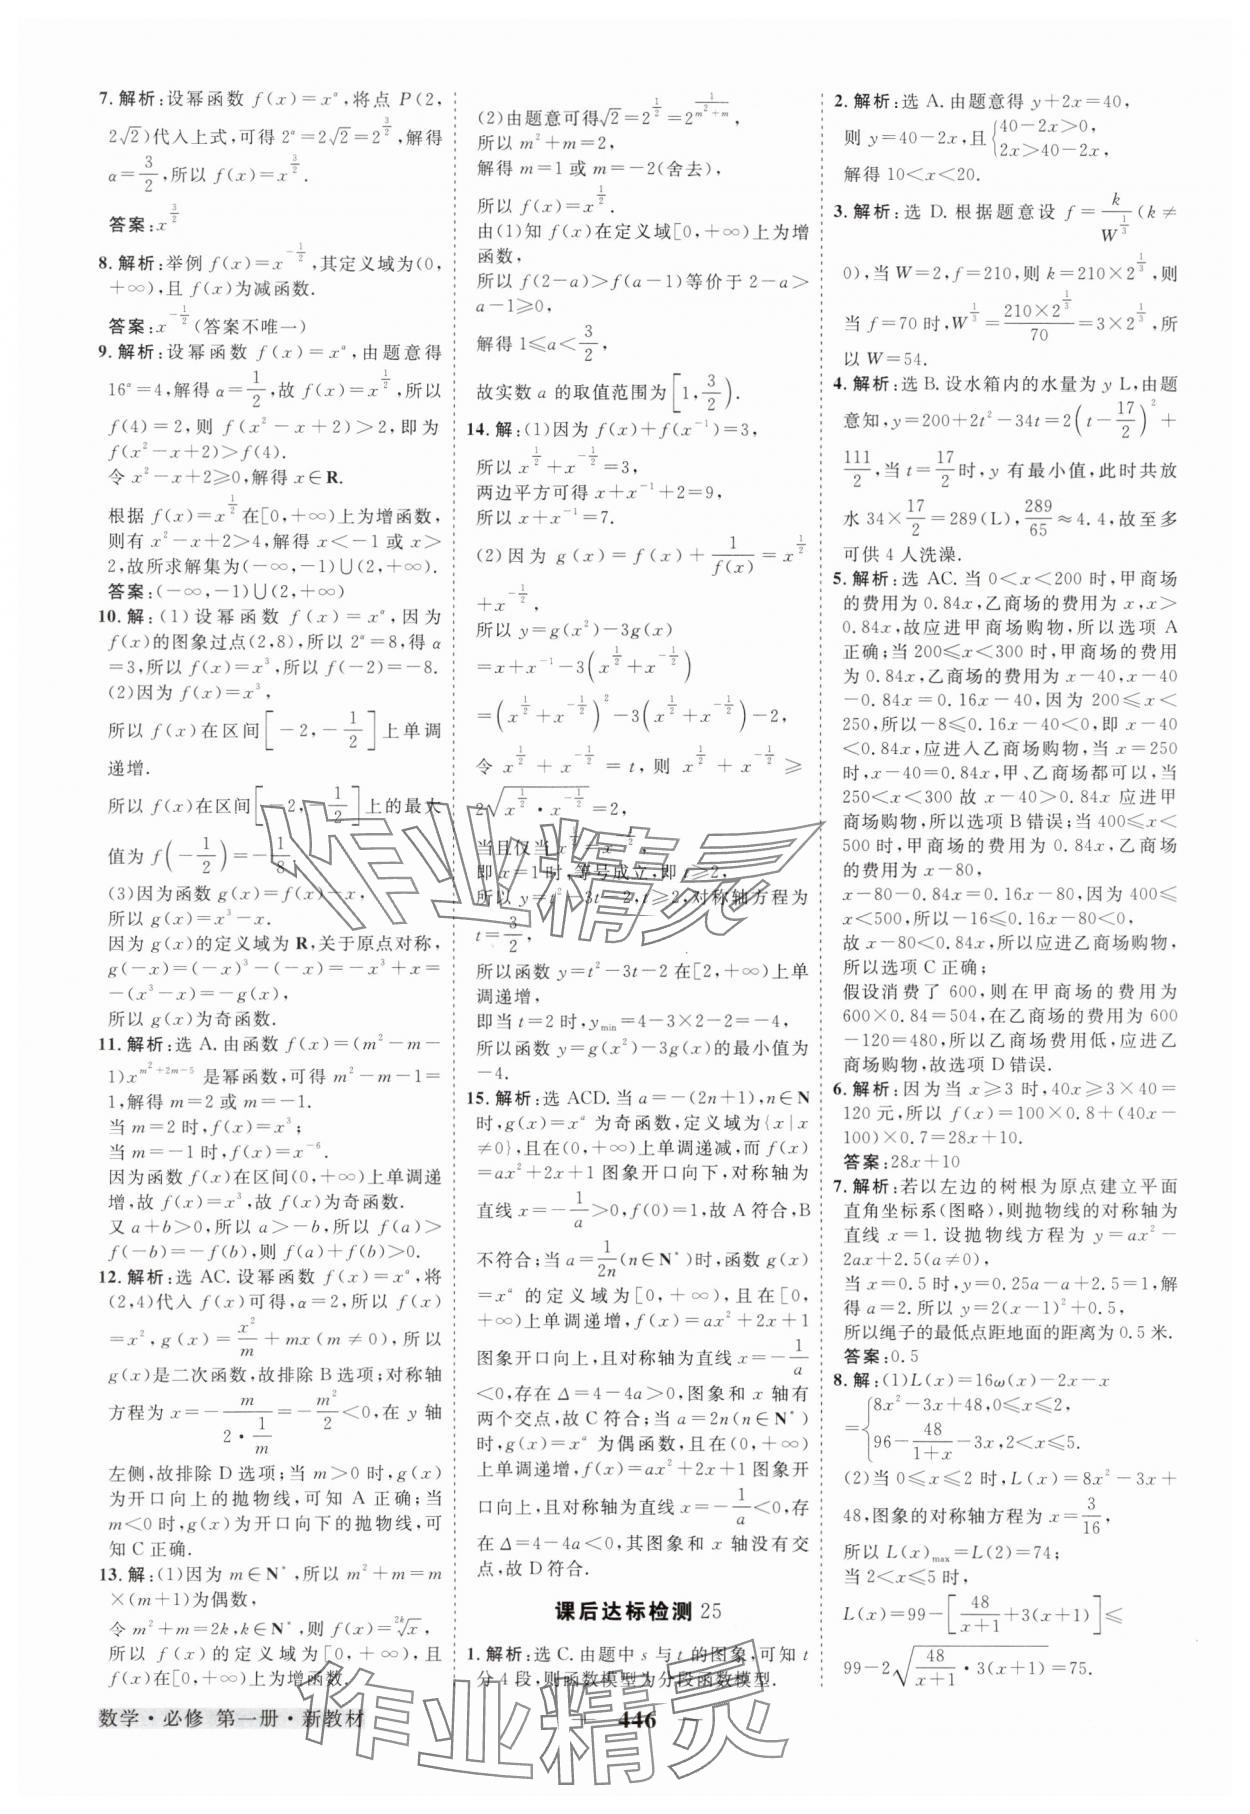 7.解析:设幂函数 f(x)=x^α,将点 P(2,
2√2)代入上式,可得 2^α=2√2=2^(3/2),解得
α=3/2,所以 f(x)=x^(3/2).
答案:x^(3/2)
8.解析:举例 f(x)=x^(-1/2),其定义域为(0,
+∞),且 f(x)为减函数.
答案:x^(-1/2)(答案不唯一)
9.解析:设幂函数 f(x)=x^α,由题意得
16^α=4,解得 α=1/2,故 f(x)=x^(1/2),所以
f(4)=2,则 f(x²-x+2)>2,即为
f(x²-x+2)>f(4).
令 x²-x+2≥0,解得 x∈R.
根据 f(x)=x^(1/2)在[0,+∞)上为增函数,
则有 x²-x+2>4,解得 x<-1 或 x>
2,故所求解集为(-∞,-1)∪(2,+∞).
答案:(-∞,-1)∪(2,+∞)
10.解:(1)设幂函数 f(x)=x^α,因为
f(x)的图象过点(2,8),所以 2^α=8,得 α
=3,所以 f(x)=x³,所以 f(-2)=-8.
(2)因为 f(x)=x³,
所以 f(x)在区间[-2,-1/2]上单调
递增.
所以 f(x)在区间[-2,-1/2]上的最大
值为 f(-1/2)=-1/8.
(3)因为函数 g(x)=f(x)-x,
所以 g(x)=x³-x.
因为 g(x)的定义域为 R,关于原点对称,
g(-x)=(-x)³-(-x)=-x³+x=
-(x³-x)=-g(x),
所以 g(x)为奇函数.
11.解析:选 A.由函数 f(x)=(m²-m-
1)x^(m²+2m-5) 是幂函数,可得 m²-m-1=
1,解得 m=2 或 m=-1.
当 m=2 时,f(x)=x³;
当 m=-1 时,f(x)=x^(-6).
因为函数 f(x)在区间(0,+∞)上单调递
增,故 f(x)=x³,故 f(x)为奇函数.
又 a+b>0,所以 a>-b,所以 f(a)>
f(-b)=-f(b),则 f(a)+f(b)>0.
12.解析:选 AC.设幂函数 f(x)=x^α,将
(2,4)代入 f(x)可得,α=2,所以 f(x)
=x²,g(x)=x²/m+mx(m≠0),所以
g(x)是二次函数,故排除 B 选项;对称轴
方程为 x=-m/(2·1/m)=-m²/2<0,在 y 轴
左侧,故排除 D 选项;当 m>0 时,g(x)
为开口向上的抛物线,可知 A 正确;当
m<0 时,g(x)为开口向下的抛物线,可
知 C 正确.
13.解:(1)因为 m∈N*,所以 m²+m=m
×(m+1)为偶数,
令 m²+m=2k,k∈N*,则 f(x)=²ᵏ√x,
所以 f(x)的定义域为[0,+∞),且
f(x)在[0,+∞)上为增函数.
(2)由题意可得√2=2^(1/2)=2^(1/(m²+m)),
所以 m²+m=2,
解得 m=1 或 m=-2(舍去),
所以 f(x)=x^(1/2).
由(1)知 f(x)在定义域[0,+∞)上为增
函数,
所以 f(2-a)>f(a-1)等价于 2-a>
a-1≥0,
解得 1≤a<3/2,
故实数 a 的取值范围为[1,3/2).
14.解:(1)因为 f(x)+f(x⁻¹)=3,
所以 x^(1/2)+x^(-1/2)=3,
两边平方可得 x+x⁻¹+2=9,
所以 x+x⁻¹=7.
(2)因为 g(x)=f(x)+1/f(x)=x^(1/2)
+x^(-1/2),
所以 y=g(x²)-3g(x)
=x+x⁻¹-3(x^(1/2)+x^(-1/2))
=(x^(1/2)+x^(-1/2))²-3(x^(1/2)+x^(-1/2))-2,
令 x^(1/2)+x^(-1/2)=t,则 x^(1/2)+x^(-1/2)≥
2√(x^(1/2)·x^(-1/2))=2,
当且仅当 x^(1/2)=x^(-1/2),
即 x=1 时,等号成立,即 t≥2,
所以 y=t²-3t-2,t≥2,对称轴方程为
t=3/2,
所以函数 y=t²-3t-2 在[2,+∞)上单
调递增,
即当 t=2 时,y_min=4-3×2-2=-4,
所以函数 y=g(x²)-3g(x)的最小值为
-4.
15.解析:选 ACD.当 α=-(2n+1),n∈N
时,g(x)=x^α 为奇函数,定义域为{x|x
≠0},且在(0,+∞)上单调递减,而 f(x)
=ax²+2x+1 图象开口向下,对称轴为
直线 x=-1/a>0,f(0)=1,故 A 符合,B
不符合;当 α=1/2n(n∈N*)时,函数 g(x)
=x^α 的定义域为[0,+∞),且在[0,
+∞)上单调递增,f(x)=ax²+2x+1
图象开口向上,且对称轴为直线 x=-1/a
<0,存在 Δ=4-4a>0,图象和 x 轴有
两个交点,故 C 符合;当 α=2n(n∈N*)
时,g(x)=x^α 为偶函数,且在(0,+∞)
上单调递增,f(x)=ax²+2x+1 图象开
口向上,且对称轴为直线 x=-1/a<0,存
在 Δ=4-4a<0,其图象和 x 轴没有交
点,故 D 符合.
课后达标检测 25
1.解析:选 C.由题中 s 与 t 的图象,可知 t
分 4 段,则函数模型为分段函数模型.
2.解析:选 A.由题意得 y+2x=40,
则 y=40-2x,且{40-2x>0,
2x>40-2x,
解得 10<x<20.
3.解析:选 D.根据题意设 f=k/W^(1/3)(k≠
0),当 W=2,f=210,则 k=210×2^(1/3),则
当 f=70 时,W^(1/3)=(210×2^(1/3))/70=3×2^(1/3),所
以 W=54.
4.解析:选 B.设水箱内的水量为 y L,由题
意知,y=200+2t²-34t=2(t-17/2)²+
111/2,当 t=17/2时,y 有最小值,此时共放
水 34×17/2=289(L),289/65≈4.4,故至多
可供 4 人洗澡.
5.解析:选 AC.当 0<x<200 时,甲商场
的费用为 0.84x,乙商场的费用为 x,x>
0.84x,故应进甲商场购物,所以选项 A
正确;当 200≤x<300 时,甲商场的费用
为 0.84x,乙商场的费用为 x-40,x-40
-0.84x=0.16x-40,因为 200≤x<
250,所以-8≤0.16x-40<0,即 x-40
<0.84x,应进入乙商场购物,当 x=250
时,x-40=0.84x,甲、乙商场都可以,当
250<x<300 故 x-40>0.84x 应进甲
商场购物,所以选项 B 错误;当 400≤x<
500 时,甲商场的费用为 0.84x,乙商场
的费用为 x-80,
x-80-0.84x=0.16x-80,因为 400≤
x<500,所以-16≤0.16x-80<0,
故 x-80<0.84x,所以应进乙商场购物,
所以选项 C 正确;
假设消费了 600,则在甲商场的费用为
600×0.84=504,在乙商场的费用为 600
-120=480,所以乙商场费用低,应进乙
商场购物,故选项 D 错误.
6.解析:因为当 x≥3 时,40x≥3×40=
120 元,所以 f(x)=100×0.8+(40x-
100)×0.7=28x+10.
答案:28x+10
7.解析:若以左边的树根为原点建立平面
直角坐标系(图略),则抛物线的对称轴为
直线 x=1.设抛物线方程为 y=ax²-
2ax+2.5(a≠0),
当 x=0.5 时,y=0.25a-a+2.5=1,解
得 a=2.所以 y=2(x-1)²+0.5,
所以绳子的最低点距地面的距离为 0.5 米.
答案:0.5
8.解:(1)L(x)=16ω(x)-2x-x
={8x²-3x+48,0≤x≤2,
96-48/(1+x)-3x,2<x≤5.
(2)当 0≤x≤2 时,L(x)=8x²-3x+
48,图象的对称轴方程为 x=3/16,
所以 L(x)_max=L(2)=74;
当 2<x≤5 时,
L(x)=99-[48/(x+1)+3(x+1)]≤
99-2√(48/(x+1)·3(x+1))=75.
数学·必修 第一册·新教材
446
作业精灵
作业精灵